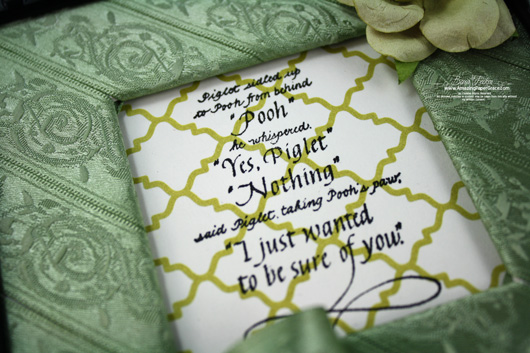 Piglet sidled up
to Pooh from behind
"Pooh"
he whispered.
"Yes, Piglet"
"Nothing"
said Piglet, taking Pooh's paw,
"I just wanted
to be sure of you."
www.AmazingPaperGrace.com